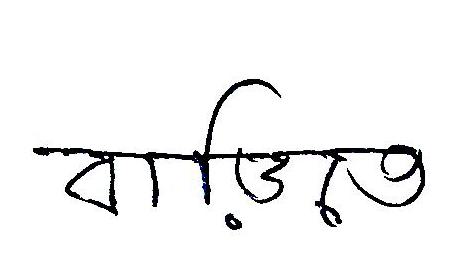 বাড়িতে